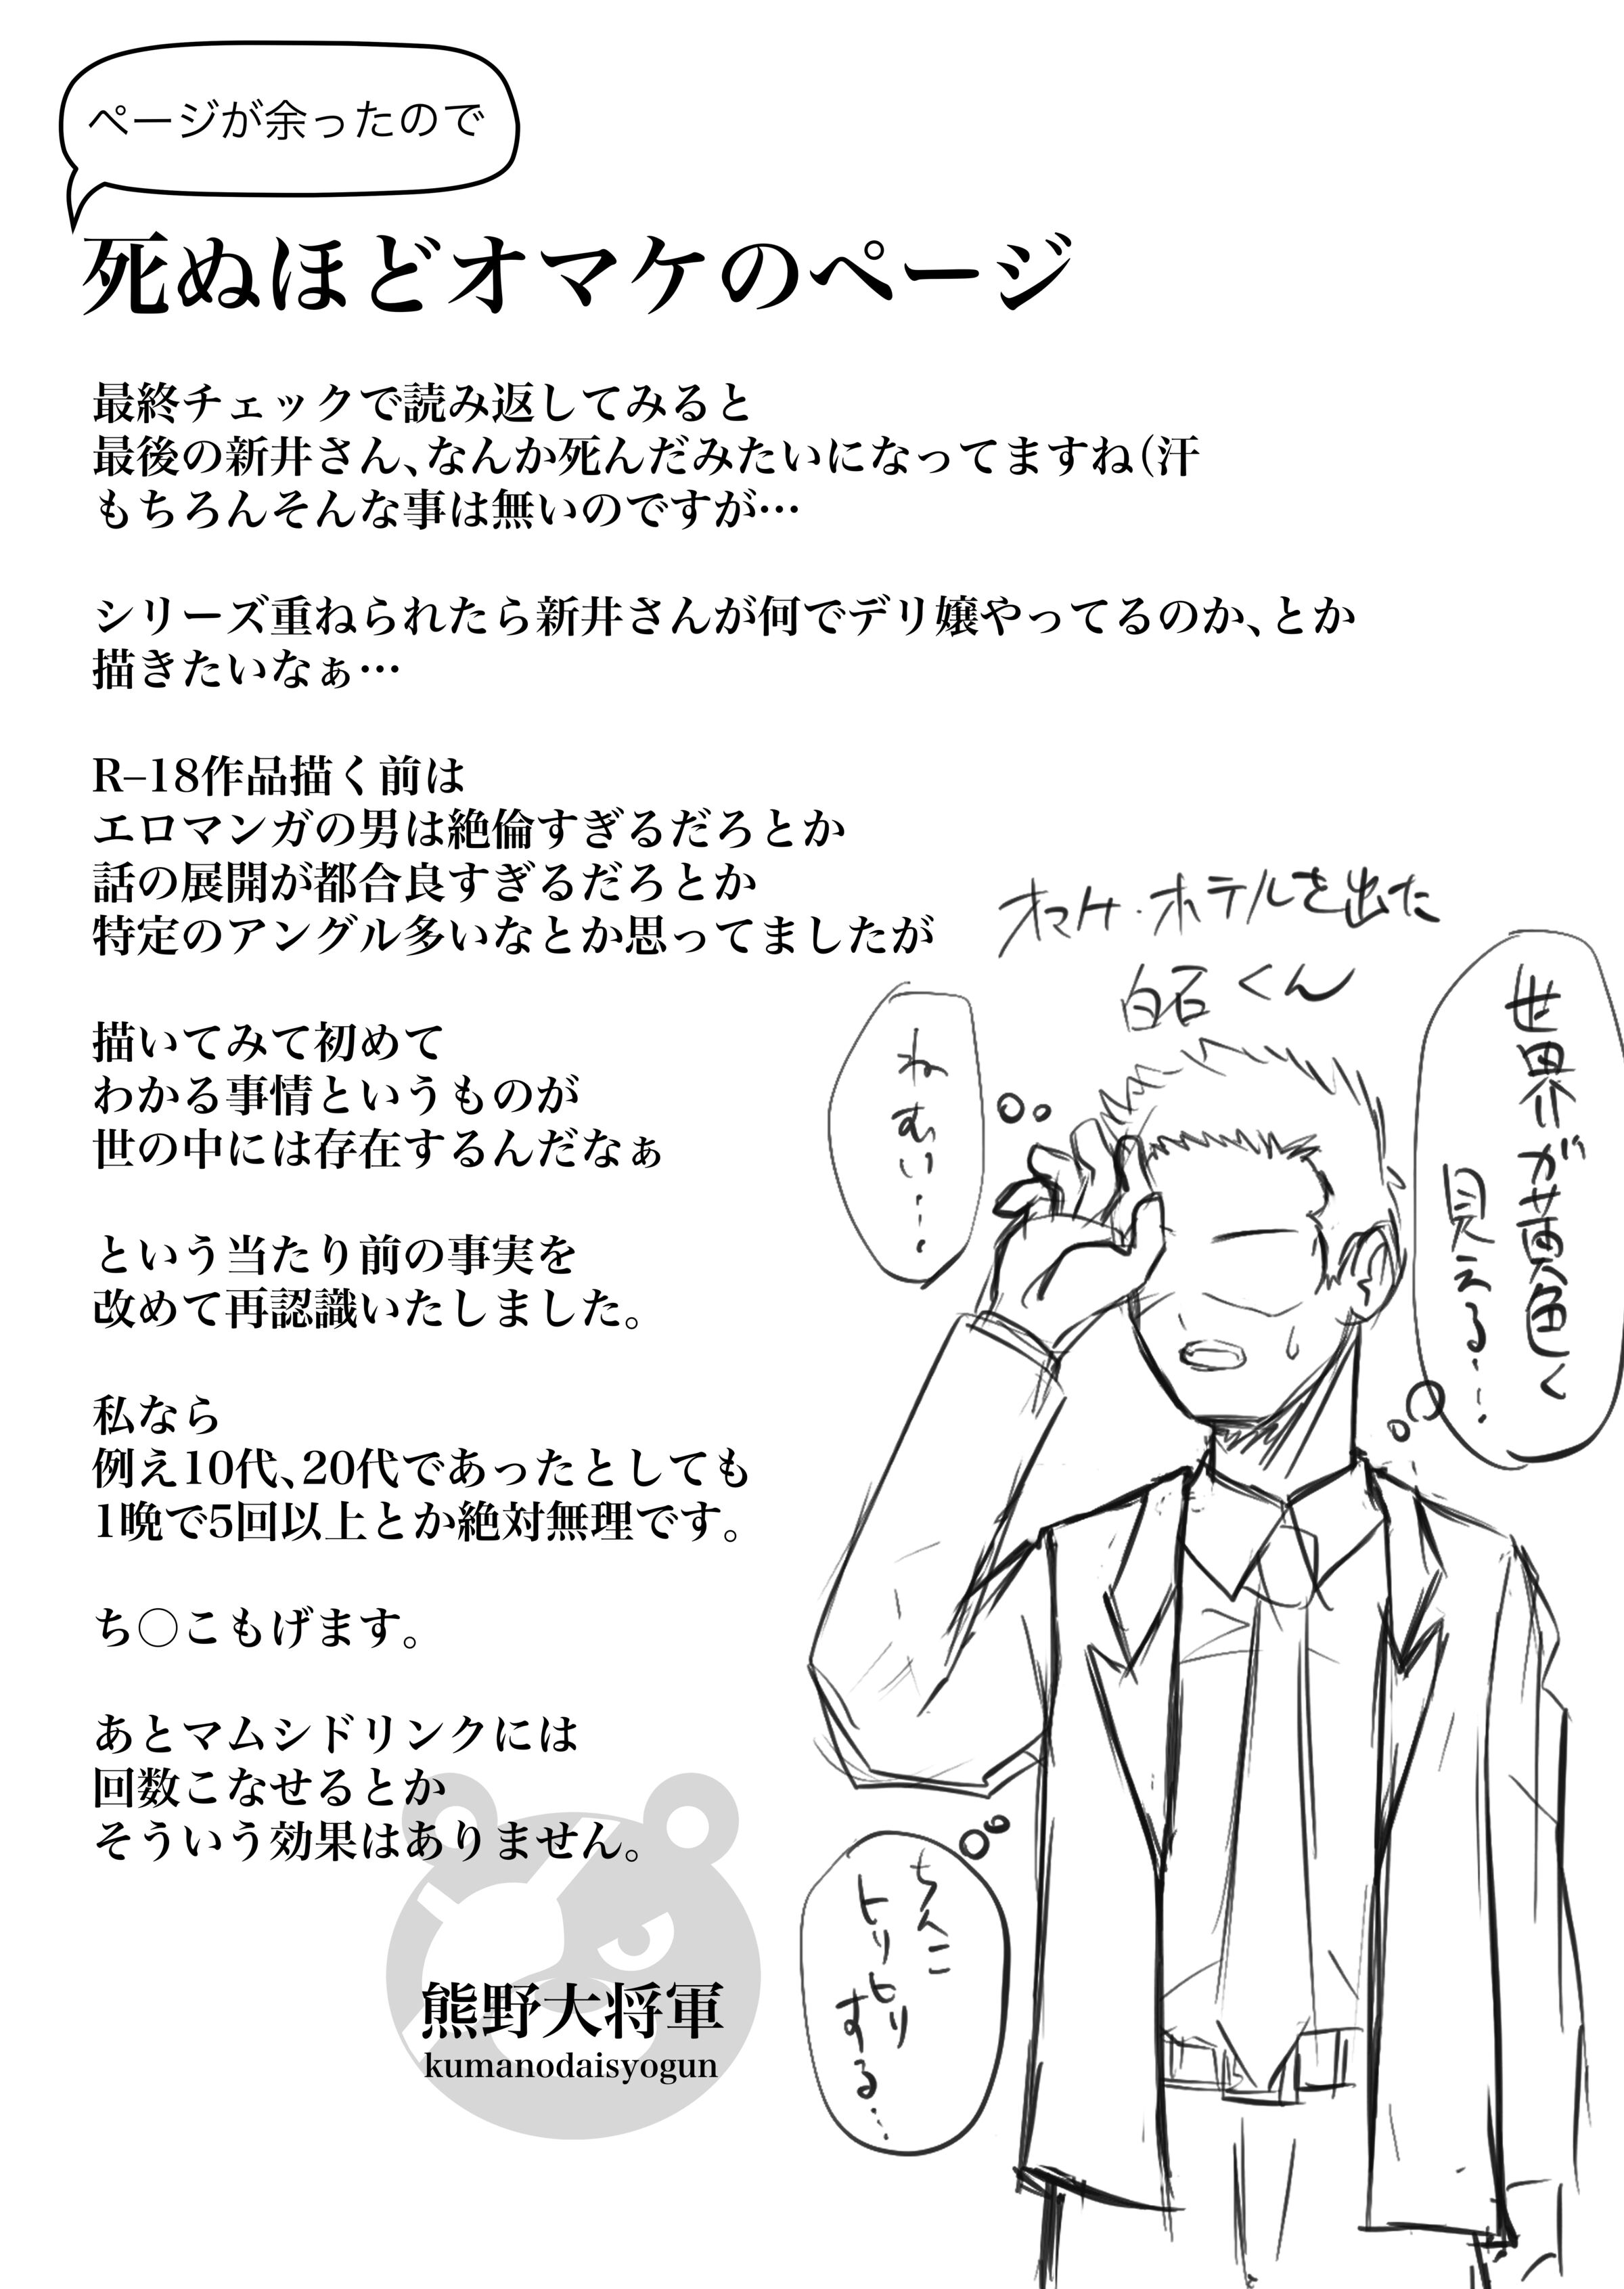 ページが余ったので
死ぬほどオマケのページ
最終チェックで読み返してみると
最後の新井さん、なんか死んだみたいになってますね(汗
もちろんそんな事は無いのですが…
シリーズ重ねられたら新井さんが何でデリ嬢やってるのか、とか
描きたいなぁ…
R–18作品描く前は
エロマンガの男は絶倫すぎるだろとか
話の展開が都合良すぎるだろとか
特定のアングル多いなとか思ってましたが
描いてみて初めて
わかる事情というものが
世の中には存在するんだなぁ
という当たり前の事実を
改めて再認識いたしました。
私なら
例え10代、20代であったとしても
1晩で5回以上とか絶対無理です。
ち〇こもげます。
あとマムシドリンクには
回数こなせるとか
そういう効果はありません。
熊野大将軍
kumanodaisyogun
オマケ・ホテルを出た
白石くん
世界が黄色く
見える…
ねむい…
ちんこ
ヒリヒリ
する…